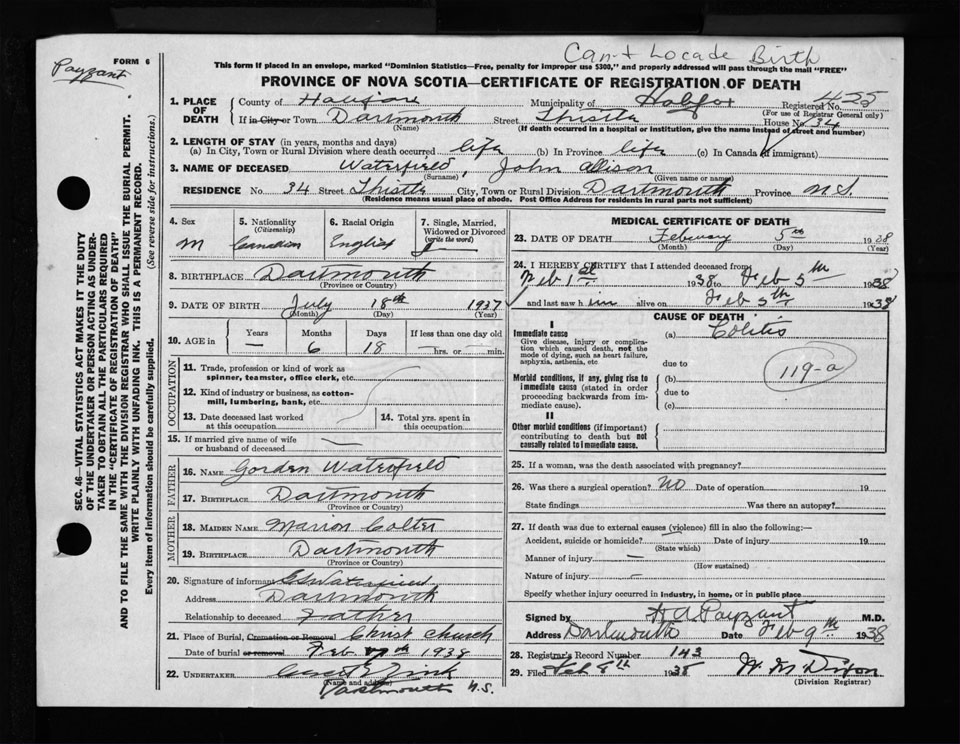 Can-t Locade Birth
Payzant
FORM 6
This form if placed in an envelope, marked "Dominion Statistics—Free, penalty for improper use $300," and properly addressed will pass through the mail "FREE"
PROVINCE OF NOVA SCOTIA—CERTIFICATE OF REGISTRATION OF DEATH
1. PLACE OF DEATH County of Halifax Municipality of Halifax Registered No. 425
(For use of Registrar General only)
If in City or Town Dartmouth Street Thistle House No. 34
(Name) (If death occurred in a hospital or institution, give the name instead of street and number)
2. LENGTH OF STAY (in years, months and days)
(a) In City, Town or Rural Division where death occurred life (b) In Province life (c) In Canada (if immigrant)
3. NAME OF DECEASED Waterfield, John Allison
(Surname) (Given name or names)
RESIDENCE No. 34 Street Thistle City, Town or Rural Division Dartmouth Province N.S.
(Residence means usual place of abode. Post Office Address for residents in rural parts not sufficient)
4. Sex 5. Nationality (Citizenship) 6. Racial Origin 7. Single, Married, Widowed or Divorced (write the word)
M Canadian English S
8. BIRTHPLACE Dartmouth
(Province or Country)
9. DATE OF BIRTH July 18th 1937
(Month) (Day) (Year)
10. AGE in Years Months Days If less than one day old
— 6 18 — hrs. or — min.
OCCUPATION
11. Trade, profession or kind of work as spinner, teamster, office clerk, etc.
12. Kind of industry or business, as cotton-mill, lumbering, bank, etc.
13. Date deceased last worked at this occupation
14. Total yrs. spent in this occupation
15. If married give name of wife or husband of deceased —
FATHER
16. NAME Gorden Waterfield
17. BIRTHPLACE Dartmouth
(Province or Country)
MOTHER
18. MAIDEN NAME Marion Colter
19. BIRTHPLACE Dartmouth
(Province or Country)
20. Signature of informant Waterfield
Address Dartmouth
Relationship to deceased Father
21. Place of Burial, Cremation or Removal Christ Church
Date of burial or removal Feb. 1938
22. UNDERTAKER Zink
(Name and address)
Dartmouth N.S.
MEDICAL CERTIFICATE OF DEATH
23. DATE OF DEATH Feberary 5th 1938
(Month) (Day) (Year)
24. I HEREBY CERTIFY that I attended deceased from
Feb 1st 1938 to Feb 5th 1938
and last saw him alive on Feb 5th 1938
CAUSE OF DEATH
I
Immediate cause (a) Colitis
Give disease, injury or complication which caused death, not the mode of dying, such as heart failure, asphyxia, asthenia, etc.
due to
119-a
Morbid conditions, if any, giving rise to immediate cause (stated in order proceeding backwards from immediate cause).
(b)
due to
(c)
II
Other morbid conditions (if important) contributing to death but not causally related to immediate cause.
25. If a woman, was the death associated with pregnancy?
26. Was there a surgical operation? NO Date of operation 19
State findings Was there an autopsy?
27. If death was due to external causes (violence) fill in also the following:—
Accident, suicide or homicide? — Date of injury 19
(State which)
Manner of injury —
(How sustained)
Nature of injury —
Specify whether injury occurred in industry, in home, or in public place
Signed by H A Payzant M.D.
Address Dartmouth Date Feb 9th 1938
28. Registrar's Record Number 143
29. Filed Feb 8th 1938 W. M. Dixon
(Division Registrar)
SEC. 46—VITAL STATISTICS ACT MAKES IT THE DUTY
OF THE UNDERTAKER OR PERSON ACTING AS UNDER-
TAKER TO OBTAIN ALL THE PARTICULARS REQUIRED
IN THE "CERTIFICATE OF REGISTRATION OF DEATH"
AND TO FILE THE SAME WITH THE DIVISION REGISTRAR WHO SHALL ISSUE THE BURIAL PERMIT.
WRITE PLAINLY WITH UNFADING INK. THIS IS A PERMANENT RECORD.
Every item of information should be carefully supplied. (See reverse side for instructions.)